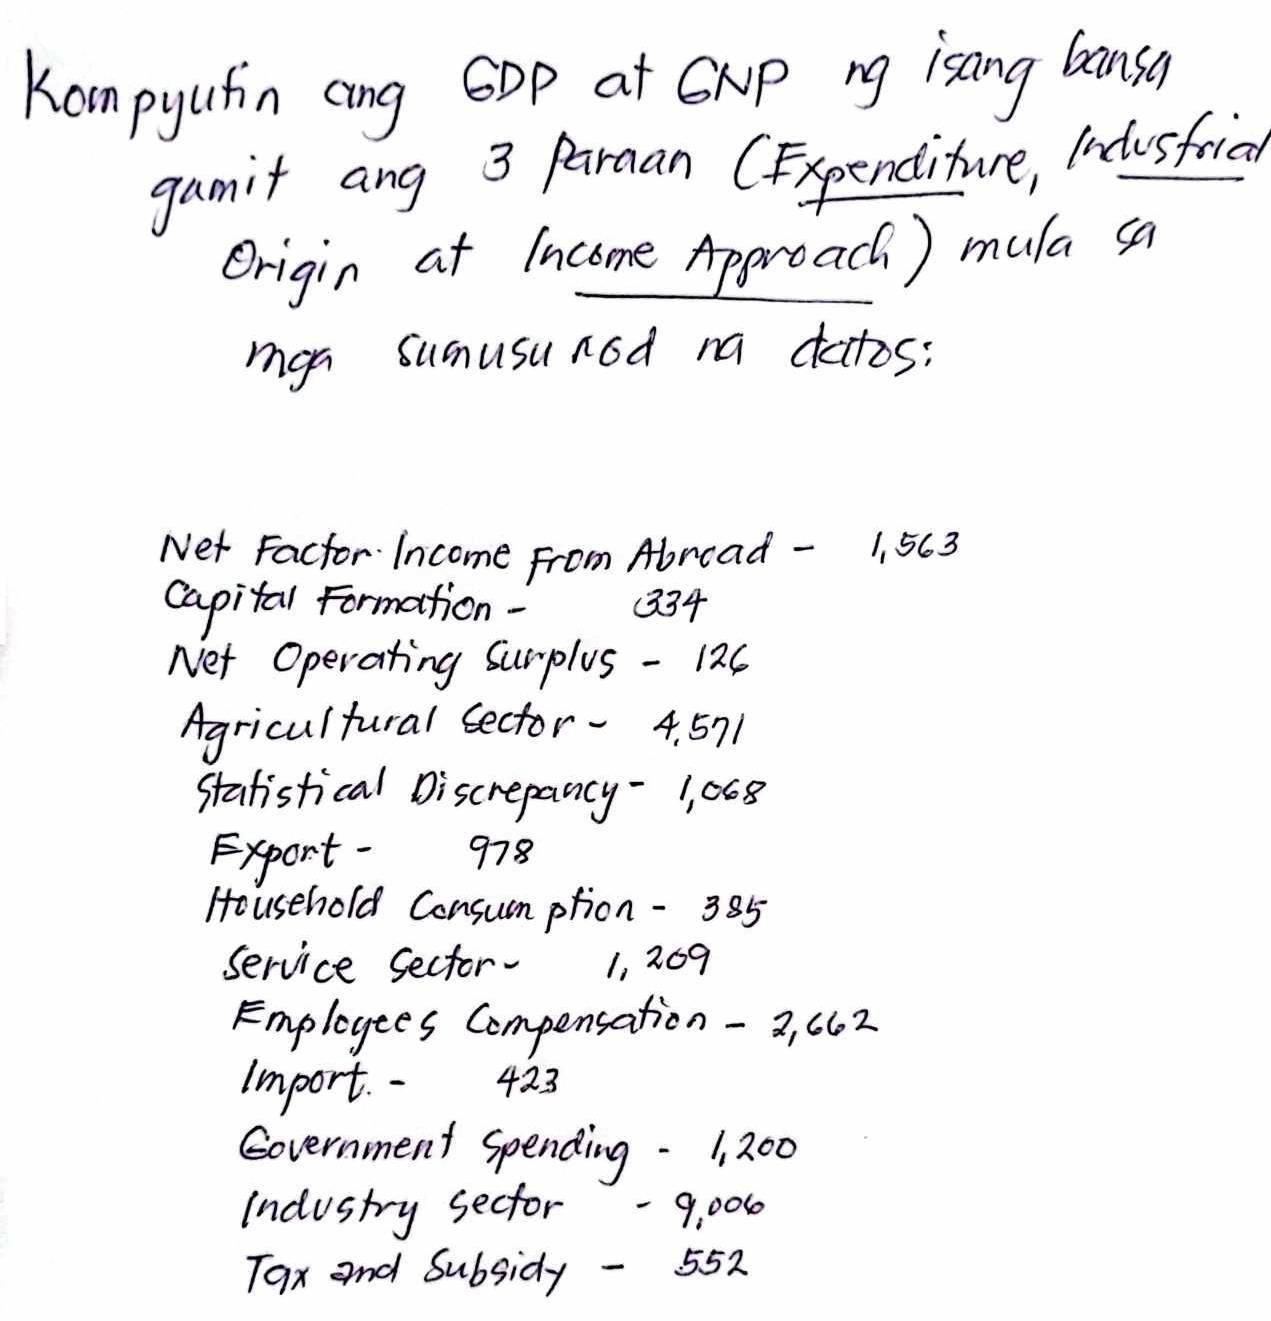 Kompyutin ang GDP at GNP ng isang bansa
gamit ang 3 Paraan (Expenditure, Industrial
Origin at Income Approach) mula sa
mga sumusunod na datos:
Net Factor Income From Abroad - 1,563
Capital Formation - 334
Net Operating Surplus - 126
Agricultural Sector - 4,571
Statistical Discrepancy - 1,068
Export - 978
Household Consumption - 385
Service Sector - 1,209
Employees Compensation - 2,662
Import. - 423
Government Spending - 1,200
Industry Sector - 9,006
Tax and Subsidy - 552